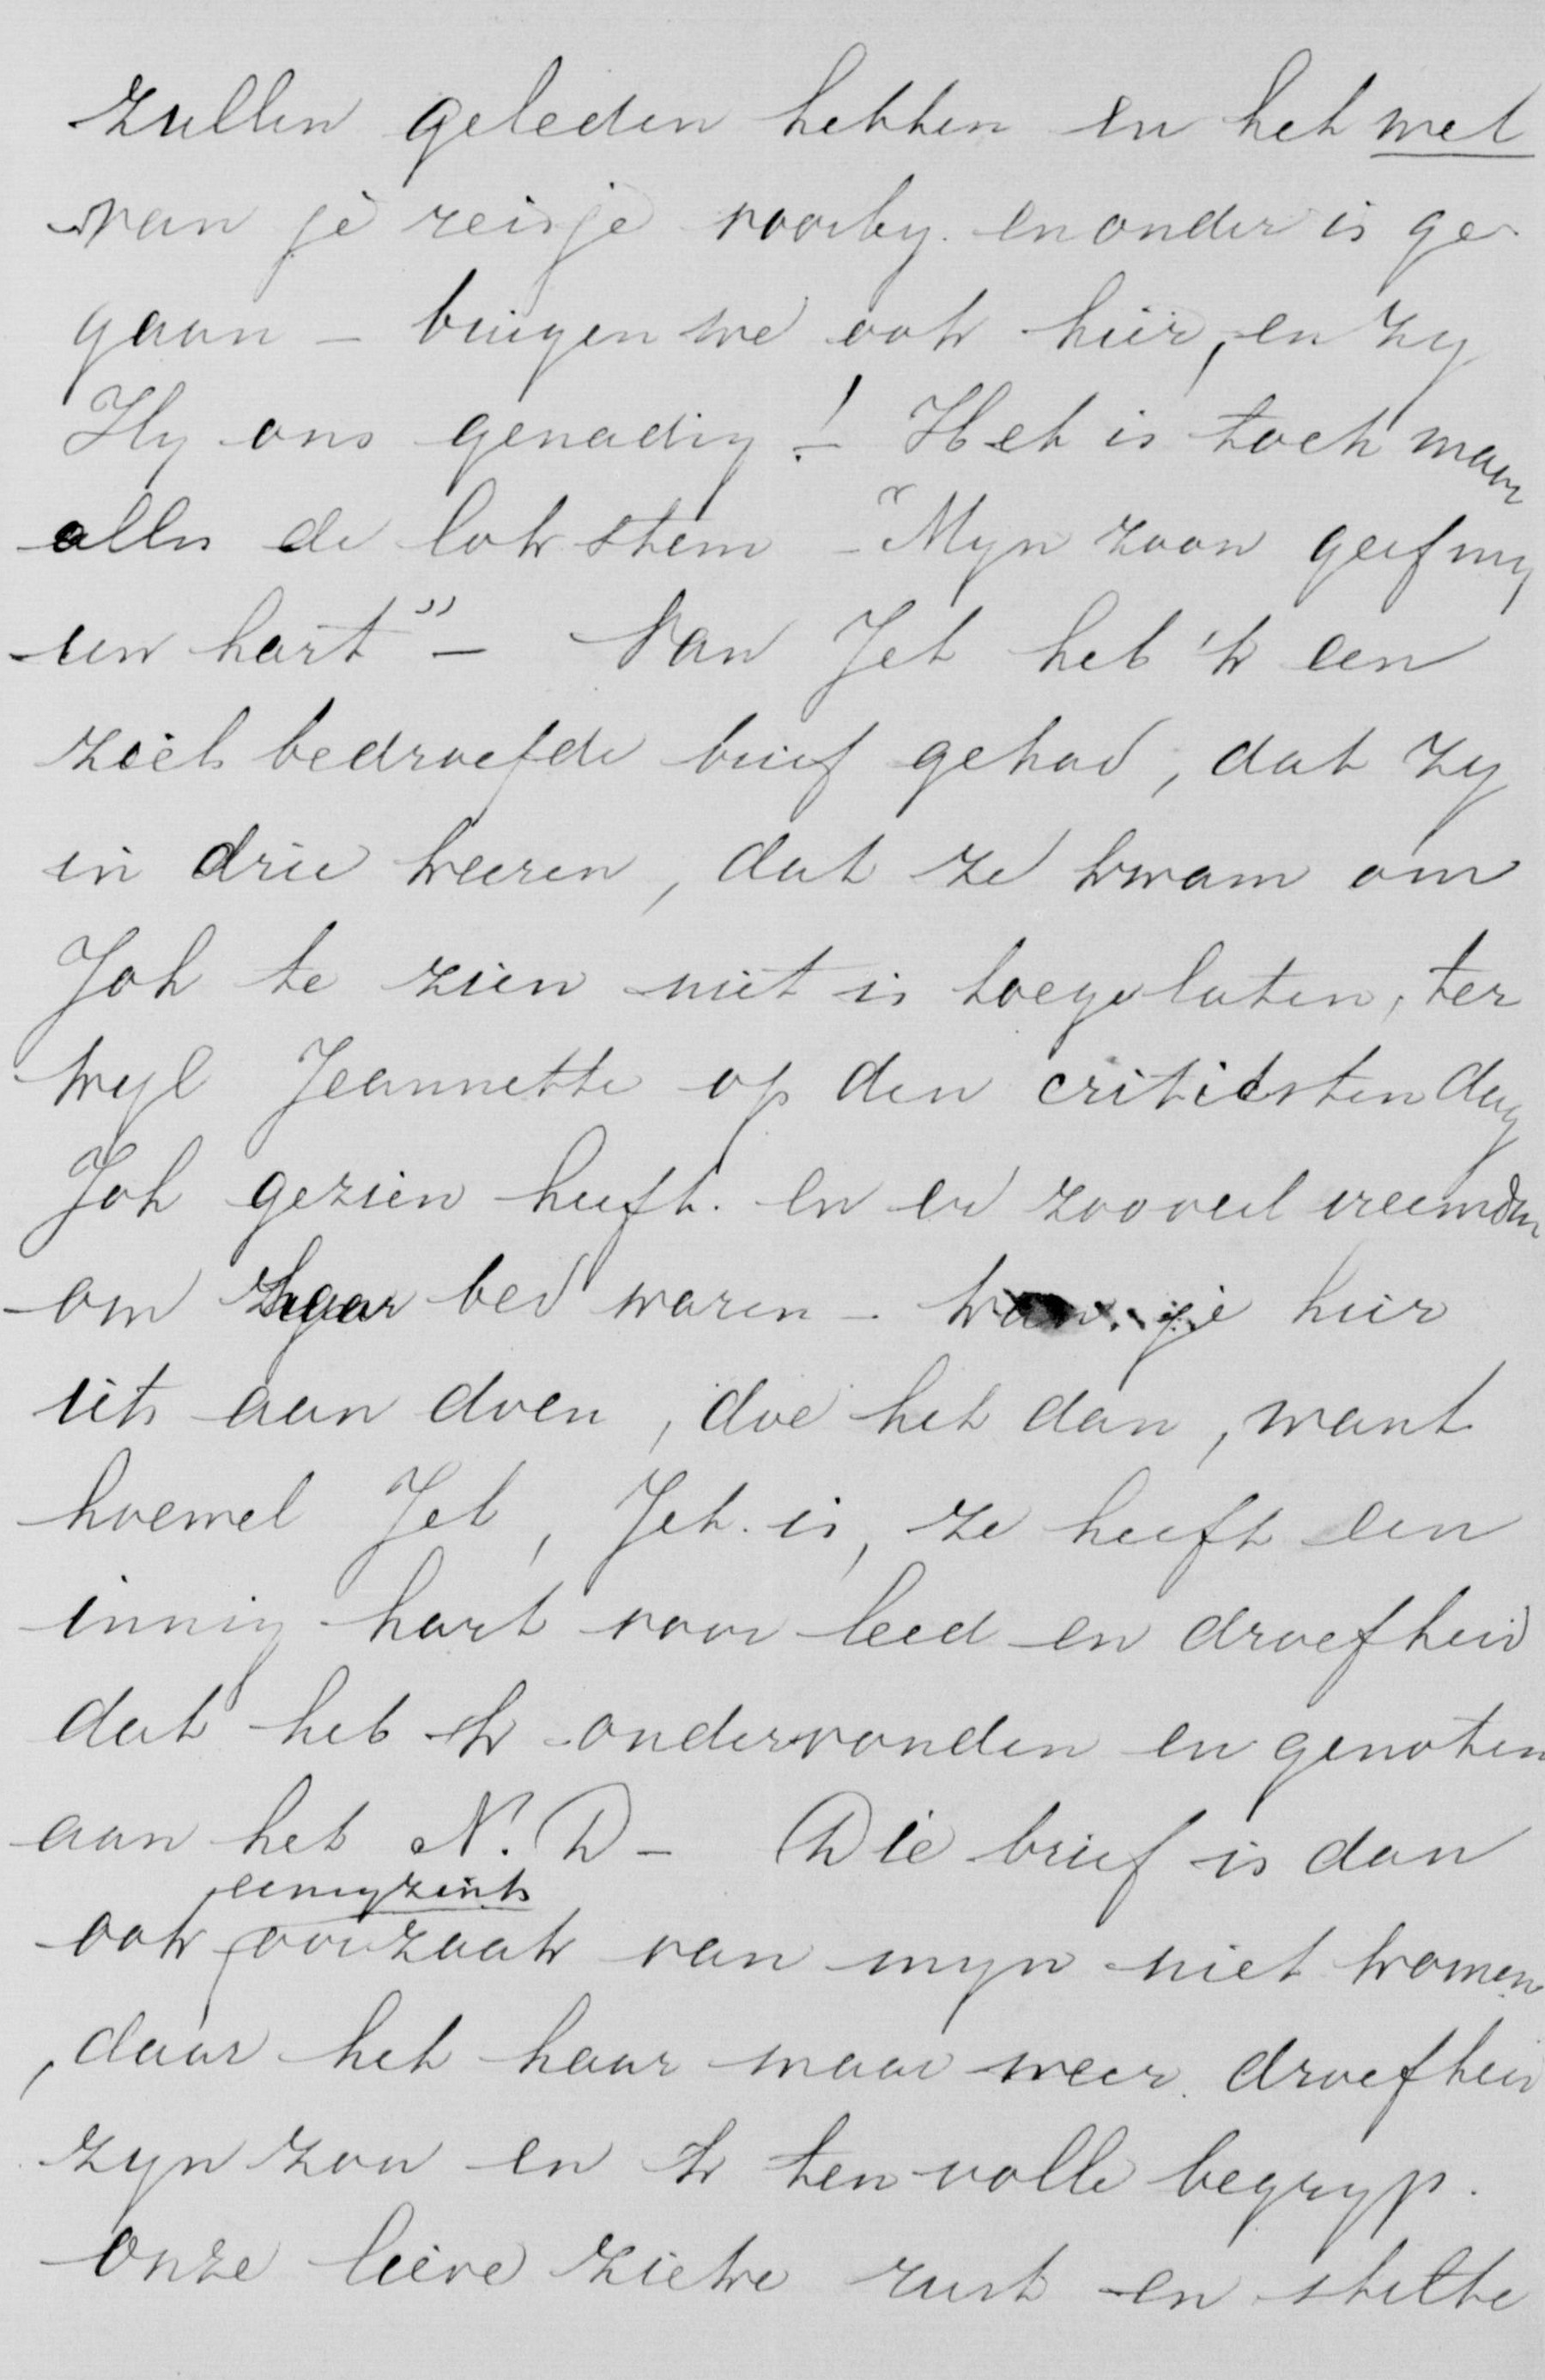 zullen geleden hebben en het wel
van je reisje voorby. en onder is ge
gaan - buigen we ook hier, en zy
Hy ons genadig! - Het is toch maar
alles de lokstem - "Myn zoon geef my
uw hart" - Van Jet heb 'k een
ziels bedroefde brief gehad, dat zy
in drie keeren, dat ze kwam om
Joh te zien niet is toegelaten, ter
wyl Jeannette op den critieksten dag
Joh gezien heeft. en er zooveel vreemden
om haar bed waren - kan je hier
iets aan doen, doe het dan, want
hoewel Jet, Jet is, ze heeft een
innig hart voor leed en droefheid
dat heb ik ondervonden en genoten
aan het N. D - Die brief is dan
eenigzints
ook oorzaak van myn niet komen
, daar het haar maar weer droefheid
zyn zou en 'k ten volle begryp.
onze lieve zieke rust en stilte